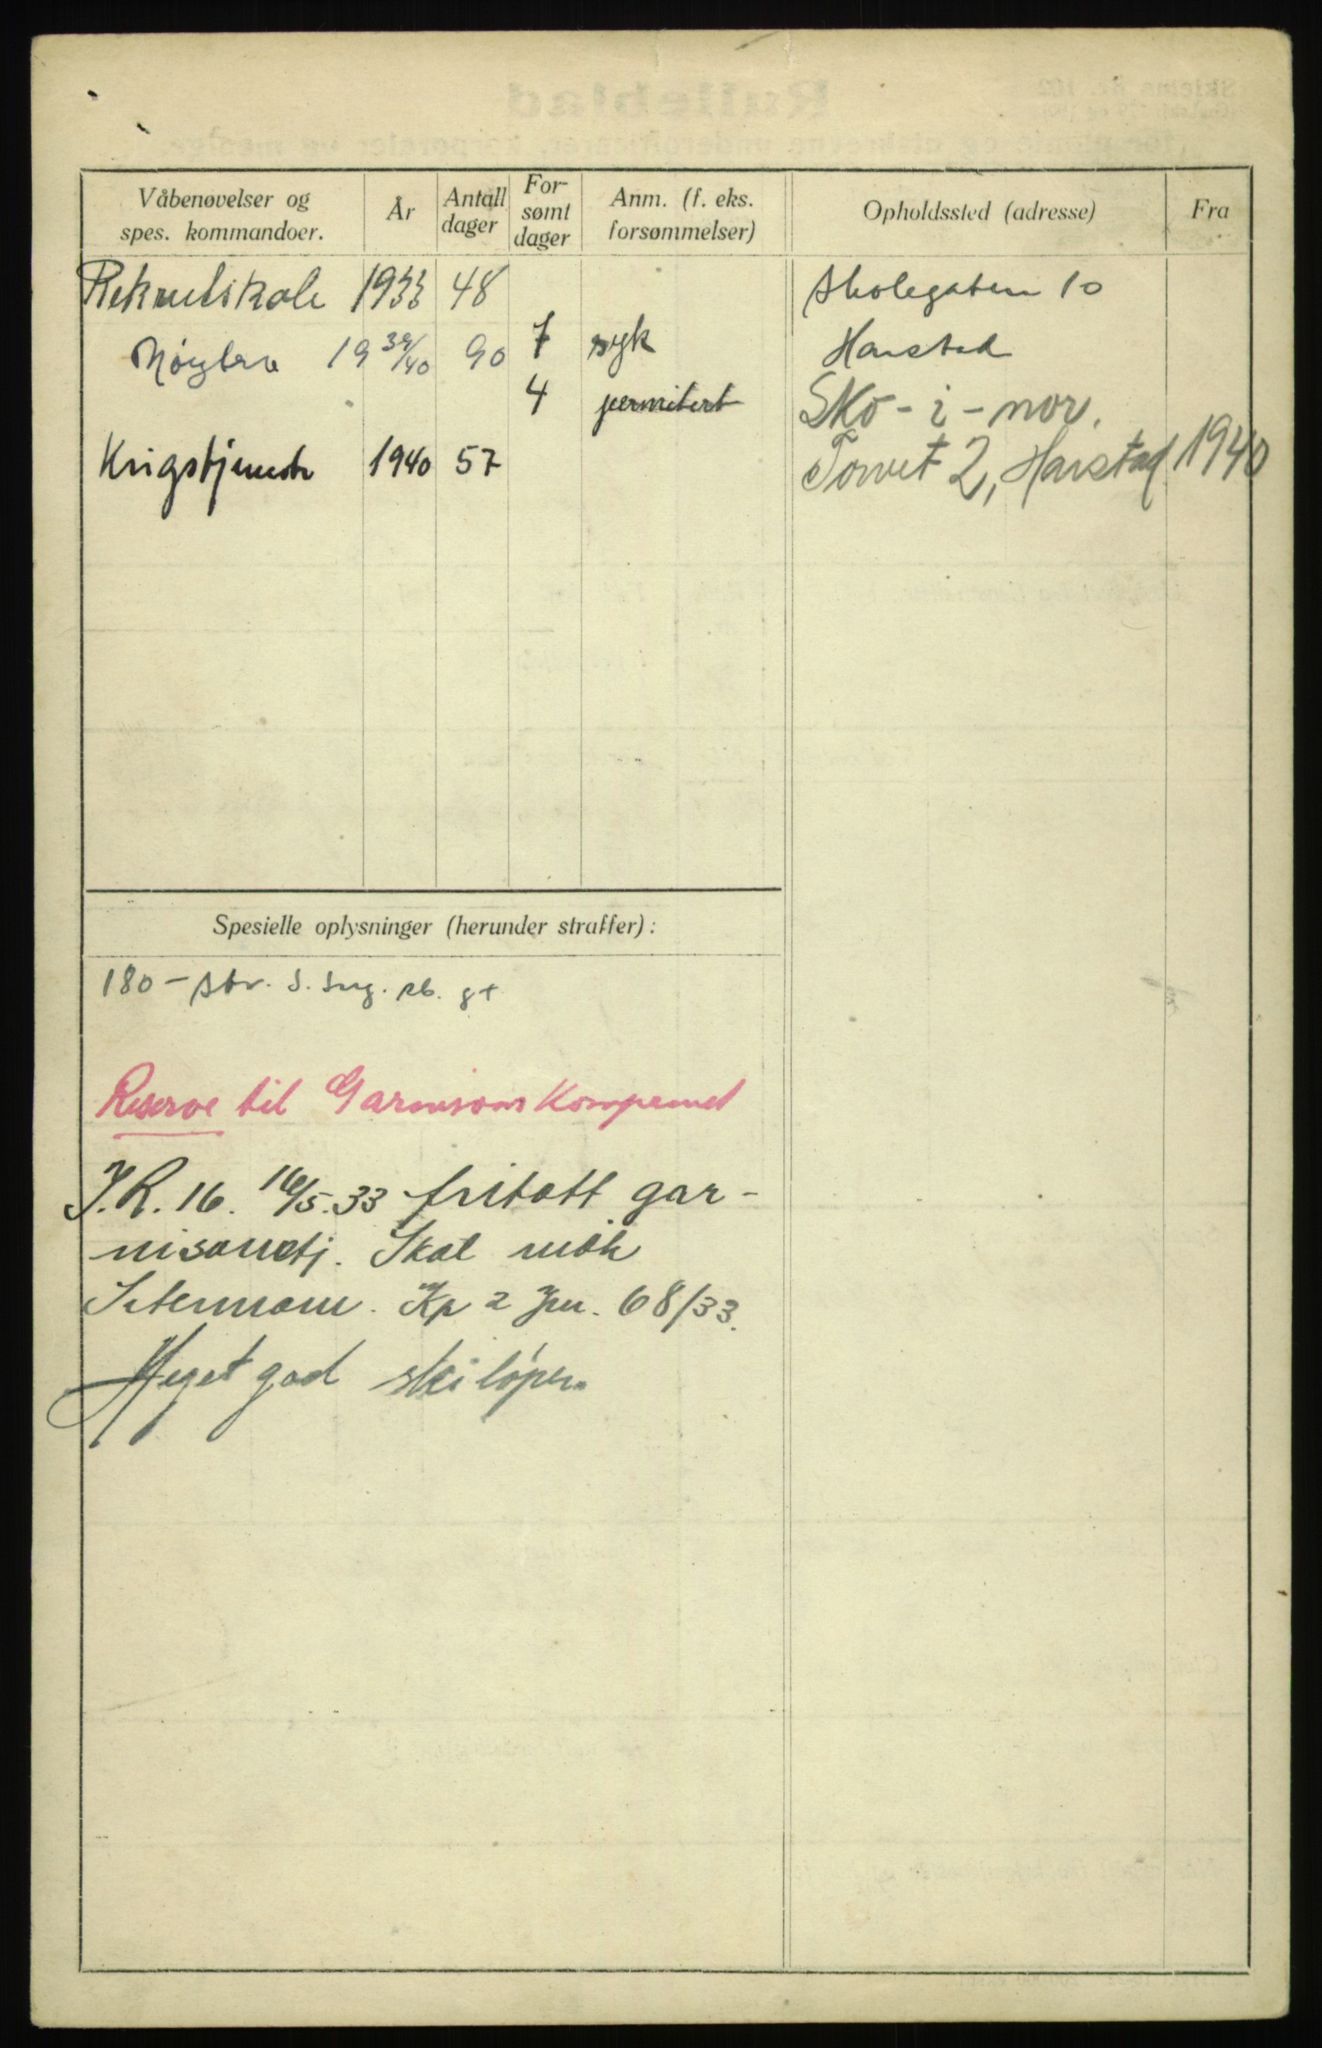 Våbenøvelser og spes. kommandoer.
År
Antall dager
For-sømt dager
Anm. (f. eks. forsømmelser)
Opholdssted (adresse)
Fra
Rekrutskole 1933 48
Nøytra 19 39/40 90 7 syk
4 permitert
Krigstjeneste 1940 57
Skolegaten 10
Harstad
Sko-i-nor.
Torvet 2, Harstad 1940
Spesielle oplysninger (herunder straffer):
180 -
Reserve til Garnisonskompaniet
I.R. 16. 16/5.33 fritatt gar-
nisonstj. Skal møte
Setermoen. Kp 2 jnr. 68/33.
Meget god skiløper.